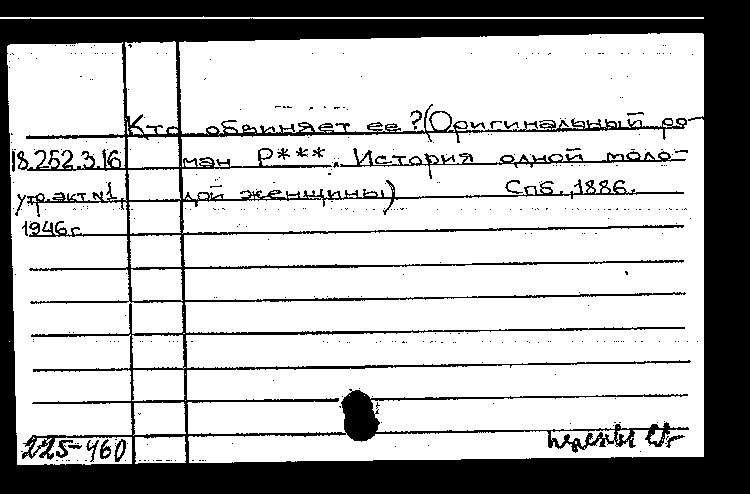 Кто обвиняет ее? (Оригинальный ро-
18.252.3.16 ман Р***. История одной моло-
утр. акт. №1, дой женщины) Спб., 1886.
1946 г.
225-460